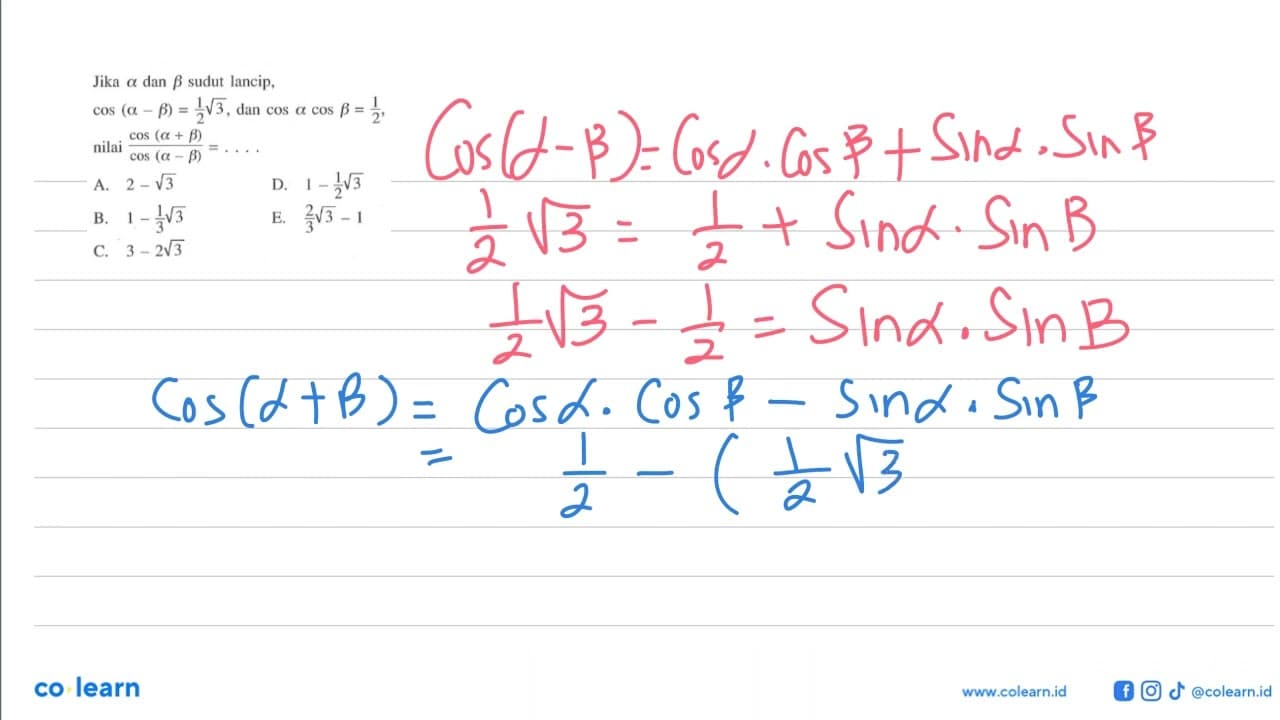 Jika α dan β sudut lancip,
cos (α − β) = 1/2√3, dan cos α cos β = 1/2,
nilai cos (α + β)/cos (α − β) = . . . .
A. 2 − √3
D. 1 − 1/2√3
B. 1 − 1/3√3
E. 2/3√3 − 1
C. 3 − 2√3
Cos(α−β)=Cosα.Cosβ+Sinα.Sinβ
1/2 √3 = 1/2 + Sinα.SinB
1/2√3 − 1/2 = Sinα.SinB
Cos(α+β) = Cosα.Cosβ − Sinα.Sinβ
= 1/2 − (1/2 √3
co learn
www.colearn.id
@colearn.id